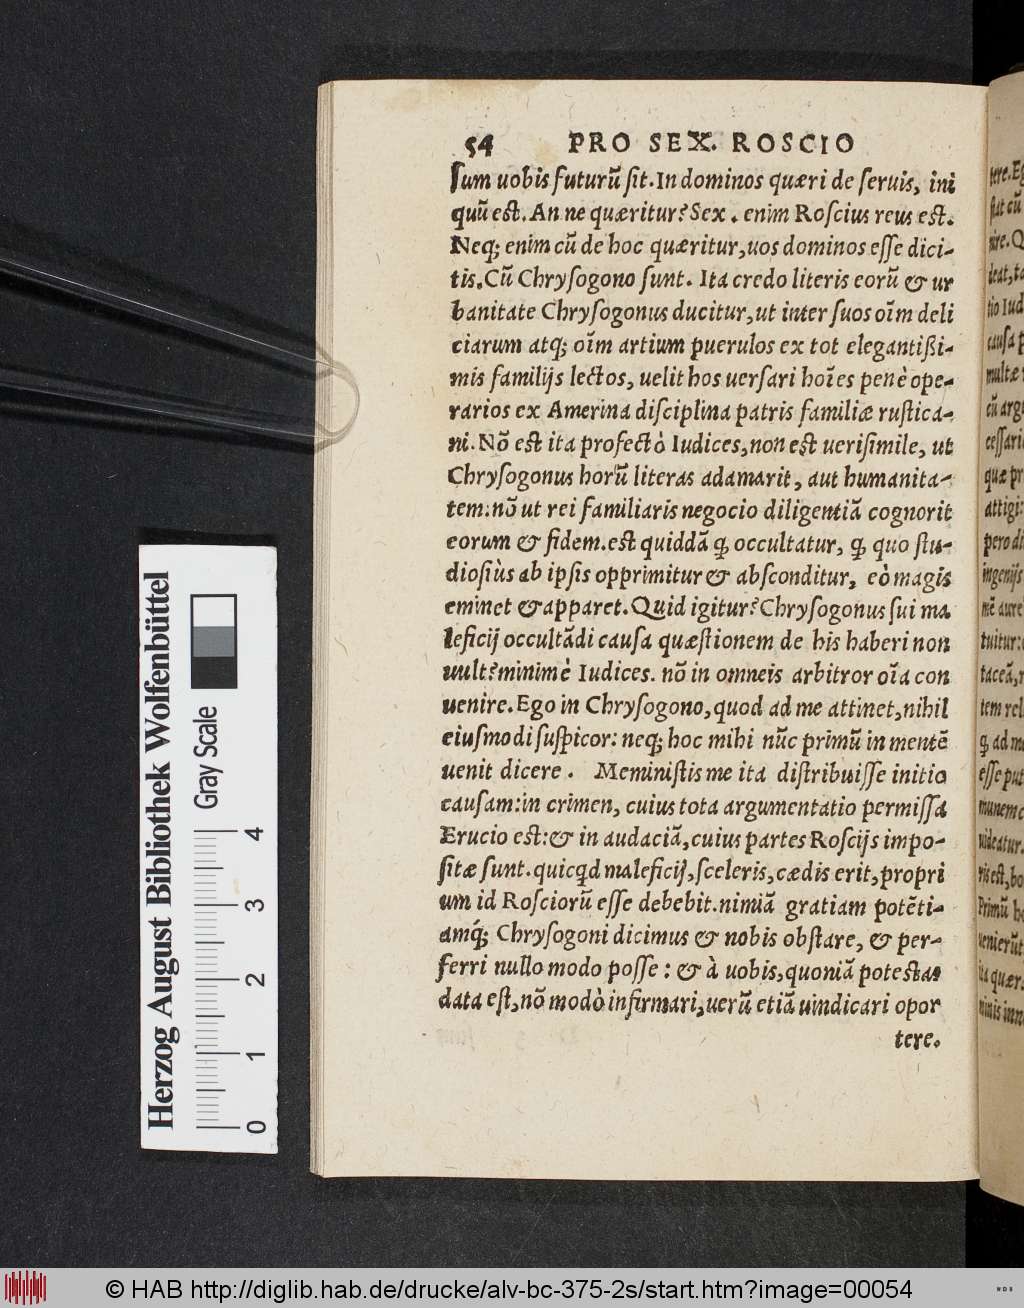 54 PRO SEX. ROSCIO
ſum uobis futurũ ſit. In dominos quæri de ſeruis, ini
quũ eſt. An ne quæritur? Sex. enim Roſcius reus eſt.
Neq; enim cũ de hoc quæritur, uos dominos eſſe dici-
tis. Cũ Chryſogono ſunt. Ita credo literis eorũ & ur
banitate Chryſogonus ducitur, ut inter ſuos oĩm deli
ciarum atq; oĩm artium puerulos ex tot elegantißi-
mis familijs lectos, uelit hos uerſari hoĩes penè ope-
rarios ex Amerina diſciplina patris familiæ ruſtica-
ni. Nõ eſt ita profectò Iudices, non eſt ueriſimile, ut
Chryſogonus horũ literas adamarit, aut humanita-
tem: nõ ut rei familiaris negocio diligentiã cognorit
eorum & fidem. eſt quiddã ꝗ occultatur, ꝗ quo ſtu-
dioſiùs ab ipſis opprimitur & abſconditur, eò magis
eminet & apparet. Quid igitur? Chryſogonus ſui ma
leficij occultãdi cauſa quæſtionem de his haberi non
uult? minimè Iudices. nõ in omneis arbitror oĩa con
uenire. Ego in Chryſogono, quod ad me attinet, nihil
eiuſmodi ſuſpicor: neq; hoc mihi nũc primũ in mentẽ
uenit dicere. Meminiſtis me ita diſtribuiſſe initio
cauſam: in crimen, cuius tota argumentatio permiſſa
Erucio eſt: & in audaciã, cuius partes Roſcijs impo-
ſitæ ſunt. quicꝗd maleficij, ſceleris, cædis erit, propri
um id Roſciorũ eſſe debebit. nimiã gratiam potẽti-
amq́; Chryſogoni dicimus & nobis obſtare, & per-
ferri nullo modo poſſe: & à uobis, quoniã poteſtas
data eſt, nõ modò infirmari, uerũ etiã uindicari opor
tere.
Herzog August Bibliothek Wolfenbüttel
Gray Scale
0 1 2 3 4
© HAB http://diglib.hab.de/drucke/alv-bc-375-2s/start.htm?image=00054